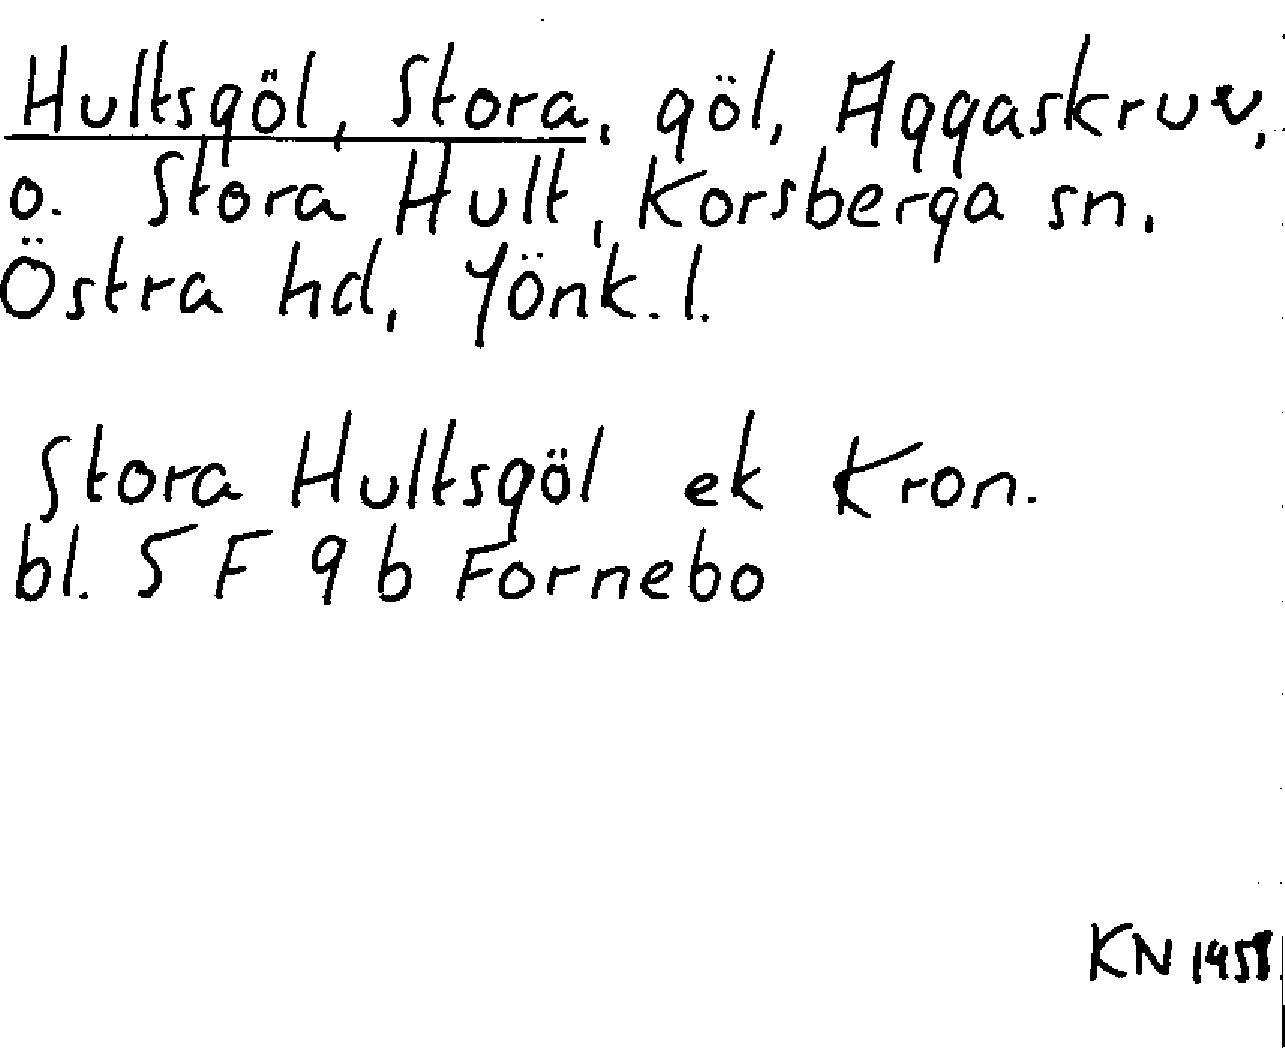 Hultsgöl, Stora, göl, Aggaskruv,
o. Stora Hult, Korsberga sn.
Östra hd, Jönk. l.
Stora Hultsgöl ek Kron.
bl. 5 F 9 b Fornebo
KN